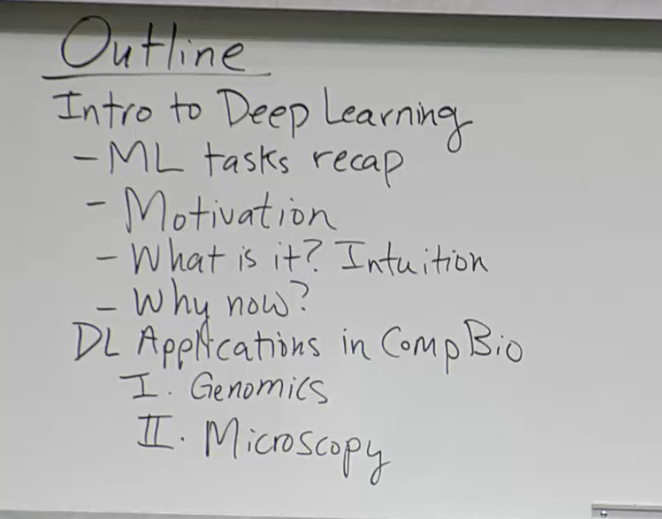 Outline
Intro to Deep Learning
- ML tasks recap
- Motivation
- What is it? Intuition
- Why now?
DL Applications in CompBio
I. Genomics
II. Microscopy